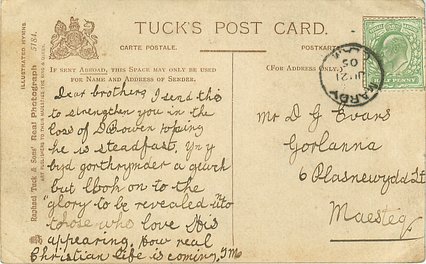 TUCK'S POST CARD.
CARTE POSTALE.
POSTKARTE
IF SENT ABROAD, THIS SPACE MAY ONLY BE USED
FOR NAME AND ADDRESS OF SENDER.
(FOR ADDRESS ONLY
ILLUSTRATED HYMNS
5181.
Raphael Tuck & Sons' Real Photograph
MARDY
JU 21
05
Dear brothers, I send this
to strengthen you in the
loss of D Bowen hoping
he is steadfast. Yn y
byd gorthrymder a geuch
but look on to the
"glory to be revealed unto
those who love His
appearing. How real
Christian life is coming, I M
Mr D J Evans
Gorlanna
6 Plasnewydd St
Maesteg